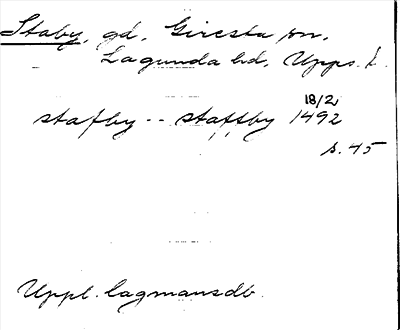 Staby, gd, Giresta sn,
Lagunda hd, Upps. l.
18/2
stafby -- staffsby 1492
s. 45
Uppl. lagmansdb.